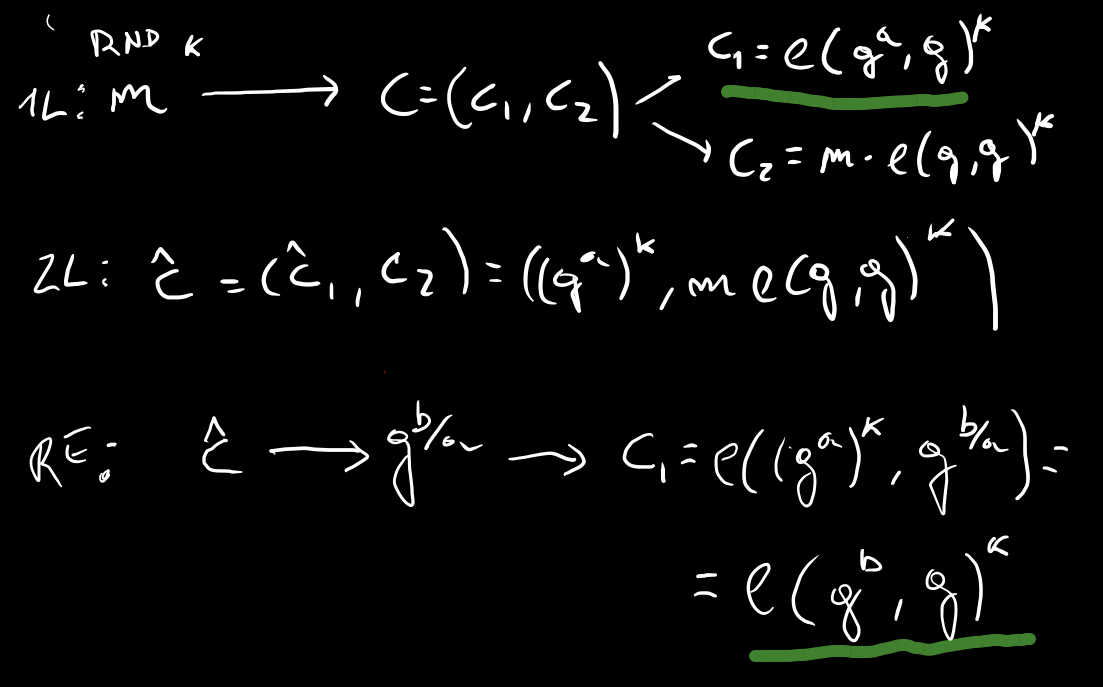 RND K
1L: m → C=(C₁, C₂) C₁ = e(gᵃ, g)ᴷ
C₂ = m · e(g, g)ᴷ
2L: ĉ = (ĉ₁, C₂) = ((gᵃ)ᵏ, m e(g, g)ᵏ)
RE: ĉ → g^b/a → C₁ = e((gᵃ)ᴷ, g^b/a) =
= e(g^b, g)ᴷ